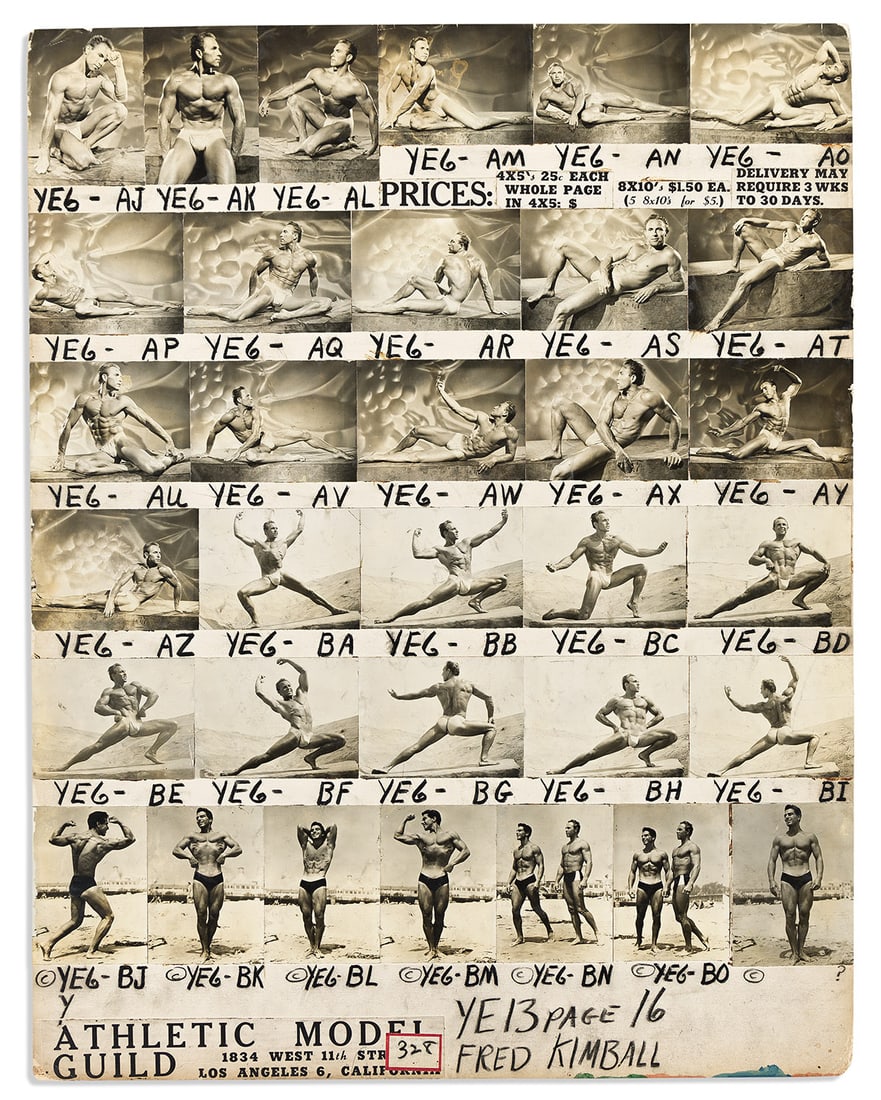 YE6 - AM YE6 - AN YE6 - AO
YE6 - AJ YE6 - AK YE6 - AL
PRICES:
4X5's 25c EACH
WHOLE PAGE
IN 4X5: $
8X10's $1.50 EA.
(5 8x10's for $5.)
DELIVERY MAY
REQUIRE 3 WKS
TO 30 DAYS.
YE6 - AP YE6 - AQ YE6 - AR YE6 - AS YE6 - AT
YE6 - AU YE6 - AV YE6 - AW YE6 - AX YE6 - AY
YE6 - AZ YE6 - BA YE6 - BB YE6 - BC YE6 - BD
YE6 - BE YE6 - BF YE6 - BG YE6 - BH YE6 - BI
© YE6 - BJ © YE6 - BK © YE6 - BL © YE6 - BM © YE6 - BN © YE6 - BO © ?
Y
ATHLETIC MODEL
GUILD
1834 WEST 11th STR
LOS ANGELES 6, CALIFORNIA
328
YE13 PAGE 16
FRED KIMBALL